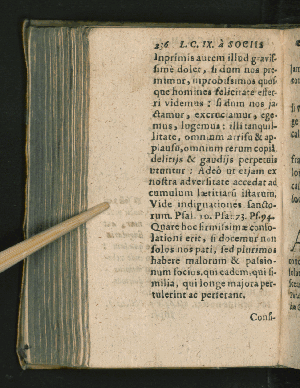 236 L. C. IX. à SOCIIS
Inprimis autem illud gravis-
sime dolet, si dum nos pre-
mimur, improbissimos quos-
que homines felicitate effer-
ri videmus: si dum nos ja-
ctamur, excruciamur, ege-
mus, lugemus: illi tranquil-
litate, omnium arrisu & ap-
plausu, omnium rerum copiâ
delitijs & gaudijs perpetuis
utuntur: Adeò ut etjam ex
nostra adversitate accedat ad
cumulum lætitiæ istarum.
Vide indignationes sancto-
rum. Psal. 10. Psal: 73. Ps. 94.
Quare hoc firmissimæ conso-
lationi erit, si docemur non
solos nos pati, sed plurimos
habere malorum & passio-
num socios, qui eadem, qui si-
milia, qui longe majora per-
tulerint ac perferant.
Consi-